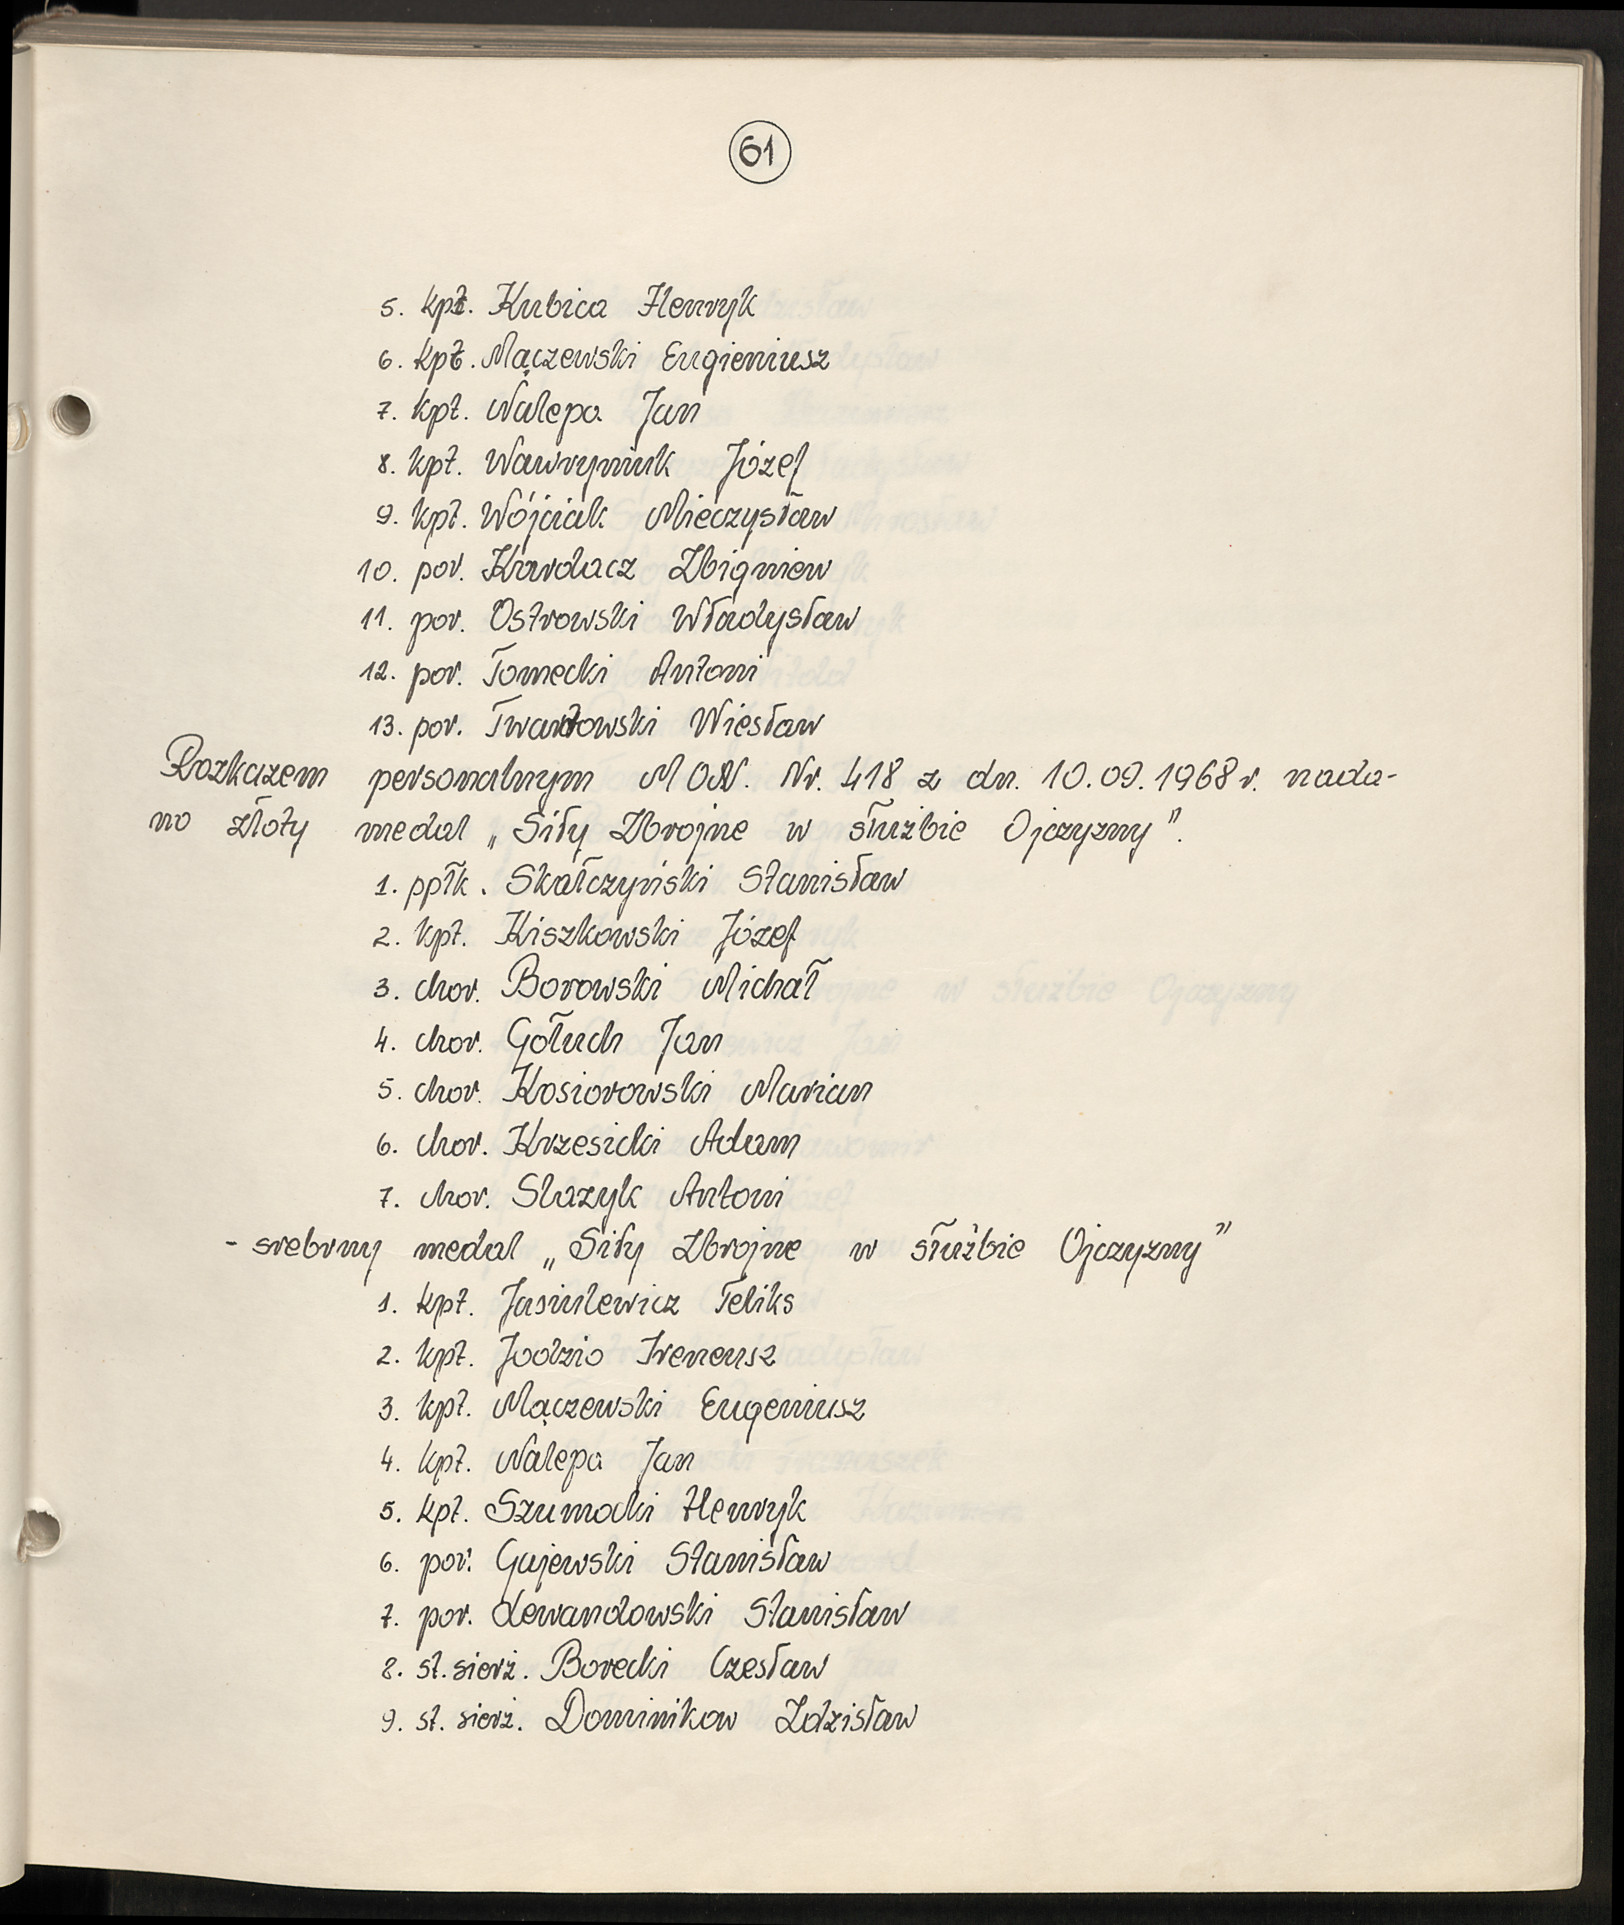 61
5. kpt. Kubica Henryk
6. kpt. Mączewski Eugieniusz
7. kpt. Nalepa Jan
8. kpt. Wawryniuk Józef
9. kpt. Wójciak Mieczysław
10. por. Kardacz Zbigniew
11. por. Ostrowski Władysław
12. por. Tomecki Antoni
13. por. Twardowski Wiesław
Rozkazem personalnym MON. Nr. 418 z dn. 10.09.1968 r. nada-
no złoty medal „Siły Zbrojne w służbie Ojczyzny".
1. ppłk. Skałczyński Stanisław
2. kpt. Kiszkowski Józef
3. chor. Borowski Michał
4. chor. Gołuch Jan
5. chor. Kosiorowski Marian
6. chor. Krzesicki Adam
7. chor. Slazyk Antoni
- srebrny medal „Siły Zbrojne w służbie Ojczyzny"
1. kpt. Jasiulewicz Feliks
2. kpt. Jodzio Ireneusz
3. kpt. Mączewski Eugeniusz
4. kpt. Nalepa Jan
5. kpt. Szumocki Henryk
6. por. Gajewski Stanisław
7. por. Lewandowski Stanisław
8. st. sierż. Borecki Czesław
9. st. sierż. Dominikow Zdzisław